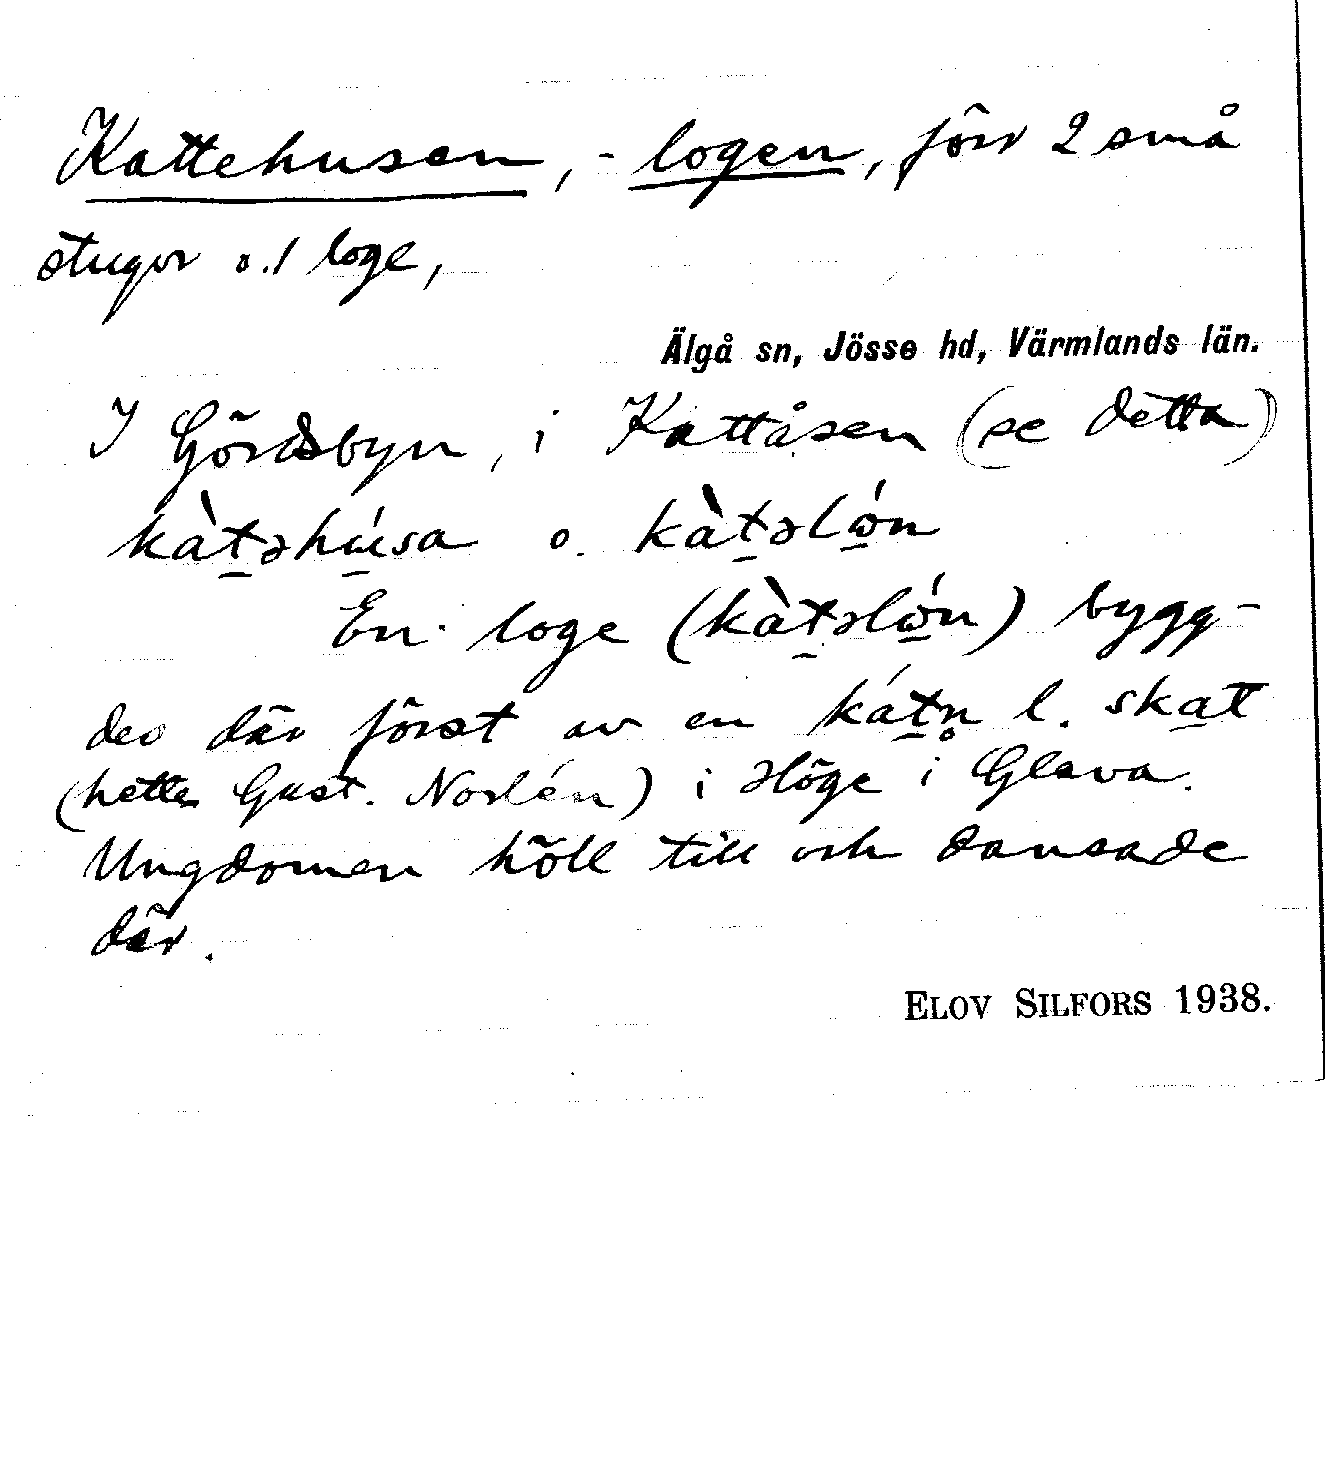 Kattehusen, -logen, förr 2 små
stugor o. 1 loge,
Älgå sn, Jösse hd, Värmlands län.
I Gördsbyn, i Kattåsen (se detta)
kàt̠əhú̠sa o. kàt̠əlώ̠n
En loge (kàt̠əlώ̠n) bygg-
des där först av en kát̠n̥ l. skat̠
(hette Gust. Norlén) i Höge i Glava.
Ungdomen höll till och dansade
där.
ELOV SILFORS 1938.